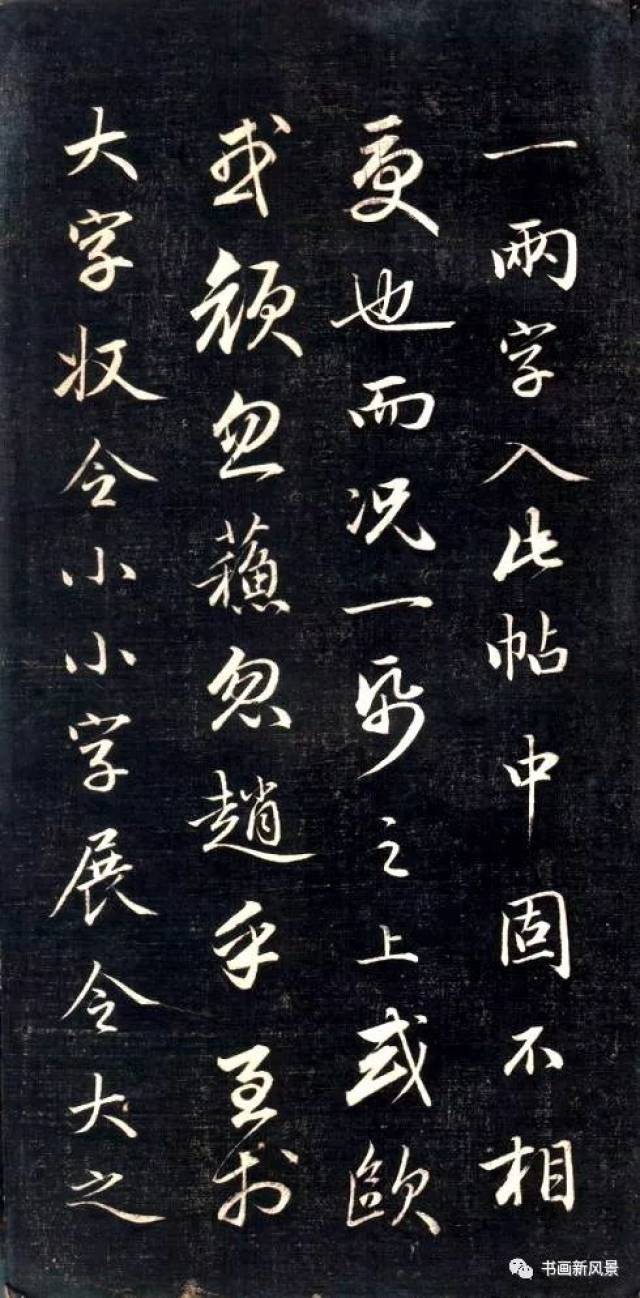 一兩字入此帖中固不相
更也而况一紙之上或歐
或顏忽蘓忽趙乎至於
大字收令小小字展令大之
书画新风景